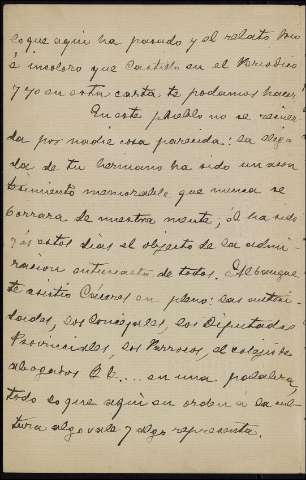 lo que aqui ha pasado y el relato frio
é incoloro que Castillo en el Periodico
y yo en esta carta te podamos hacer.
En este pueblo no se recuer-
da por nadie cosa parecida: la llega-
da de tu hermano ha sido un acon-
tesimiento memorable que nunca se
borrara de nuestra mente; él ha sido
estos dias el objeto de la admi-
racion entusiasta de todos. Al banque-
te asistió Cáceres en pleno: las autori-
dades, los Concejales, los Diputados
Provinciales, los Parrocos, el colejio de
abogados &.... en una palabra,
todo lo que aqui en orden á la cul-
tura algo vale y algo representa.